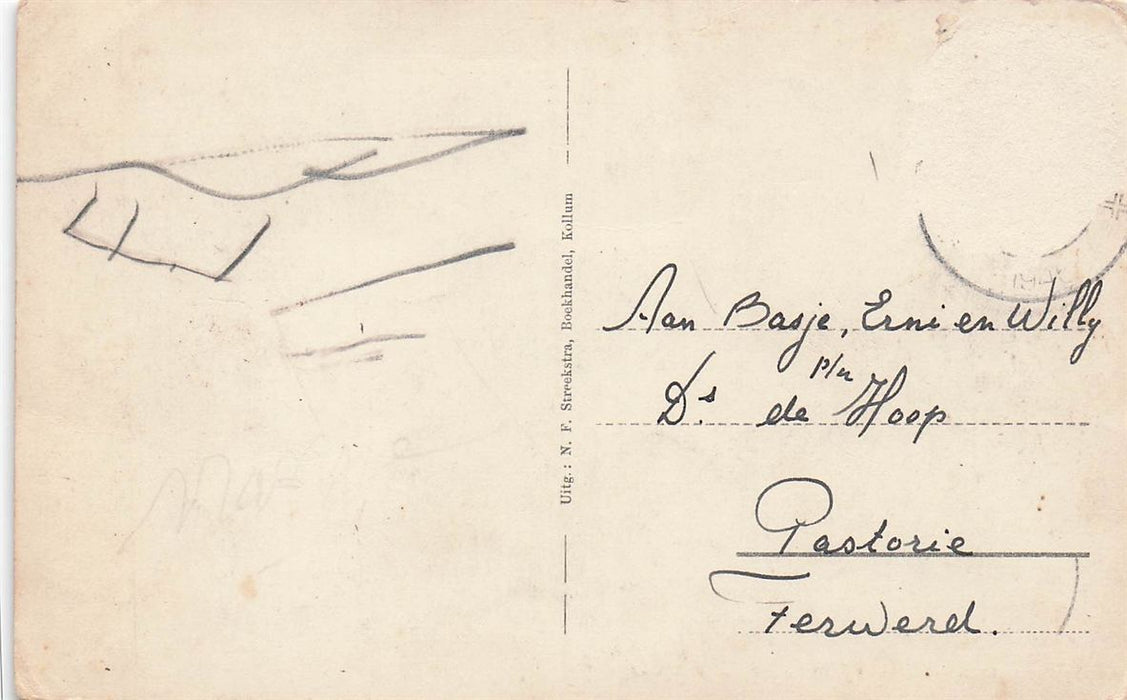 Uitg.: N. F. Streekstra, Boekhandel, Kollum
Aan Basje, Erni en Willy
p/a
Ds. de Hoop
Pastorie
Ferwerd.